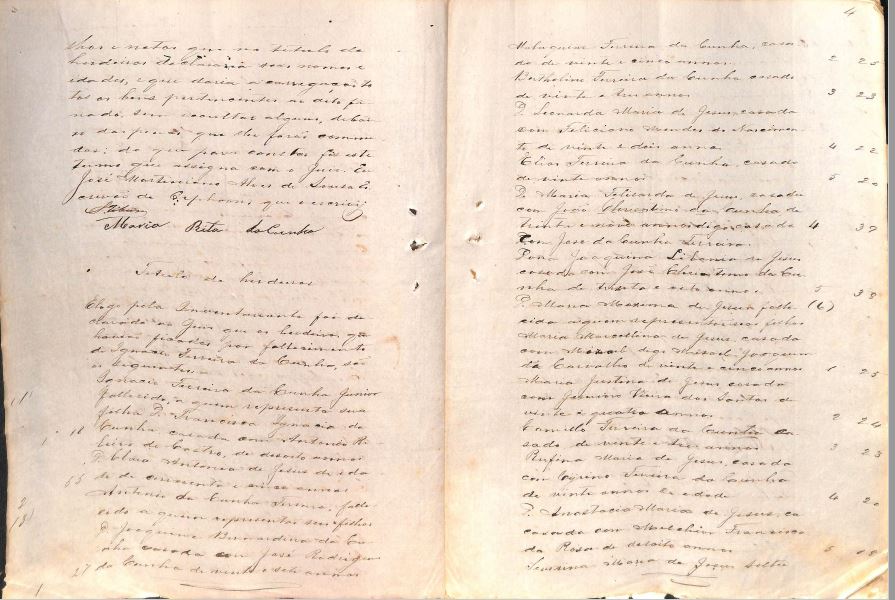 lhas e netos que no titulo de
herdeiros declararia seus nomes e
idades, e que daria a carregação to
tos os bens pertencentes ao dito fi
nado, sem occultar algum, debai
xo das penas que lhe forão commi
das; do que para constar fiz este
termo que assigna com o Juiz. Eu
José Martiniano Alves de Sousa, Es
crivão de Orphaons, que o escrevi
Maria Rita da Cunha
Titulo de herdeiros
E logo pela Inventariante foi de
clarado ao Juiz que os herdeiros que
havião ficados por fallecimento
de Ignacio Ferreira da Cunha, são
os seguintes
Ignacio Ferreira da Cunha Junior
fallecido, a quem representa sua
filha D. Francisca Ignacia da
Cunha casada com Antonio Ri
beiro de Castro, de desoito annos
18
D. Clara Antonia de Jesus de ida
de de cincoenta e cinco annos
55
Antonio da Cunha Ferreira, falle
cido a quem representa seus filhos
D. Joaquina Bernardina da Cu
nha casada com José Rodrigues
da Cunha de vinte e sete annos
27
4
Malaquias Ferreira da Cunha, casa
do de vinte e cinco annos 2 25
Bartholino Ferreira da Cunha casado
de vinte e tres annos 3 23
D. Leonarda Maria de Jesus, casada
com Feliciano Mendes do Nascimen
to de vinte e dois annos 4 22
Elias Ferreira da Cunha, casado
de vinte annos 5 20
D. Maria Felisarda de Jesus, casada
com João Clarentino da Cunha de
trinta e sete annos, digo, casada 4 37
com José da Cunha Ferreira.
Dona Joaquina Libania de Jesus
casada com José Cunha da Cu
nha de trinta e oito annos 5 38
D. Maria Maxima de Jesus falle (6)
cida a quem representa seus filhos
Maria Marcellina de Jesus, casada
com Manoel digo Misael Joaquim
de Carvalho de vinte e cinco annos 1 25
Maria Justina de Jesus casada
com Genuino Vieira dos Santos de
vinte e quatro annos 2 24
Camillo Ferreira da Cunha ca
sado de vinte e tres annos 3 23
Rufina Maria de Jesus, casada
com Cyrino Ferreira da Cunha
de vinte annos de edade 4 20
D. Anastacia Maria de Jesus, ca
casada com Melchior Francisco
da Rosa de desoito annos 5 18
Severina Maria de Jesus solte